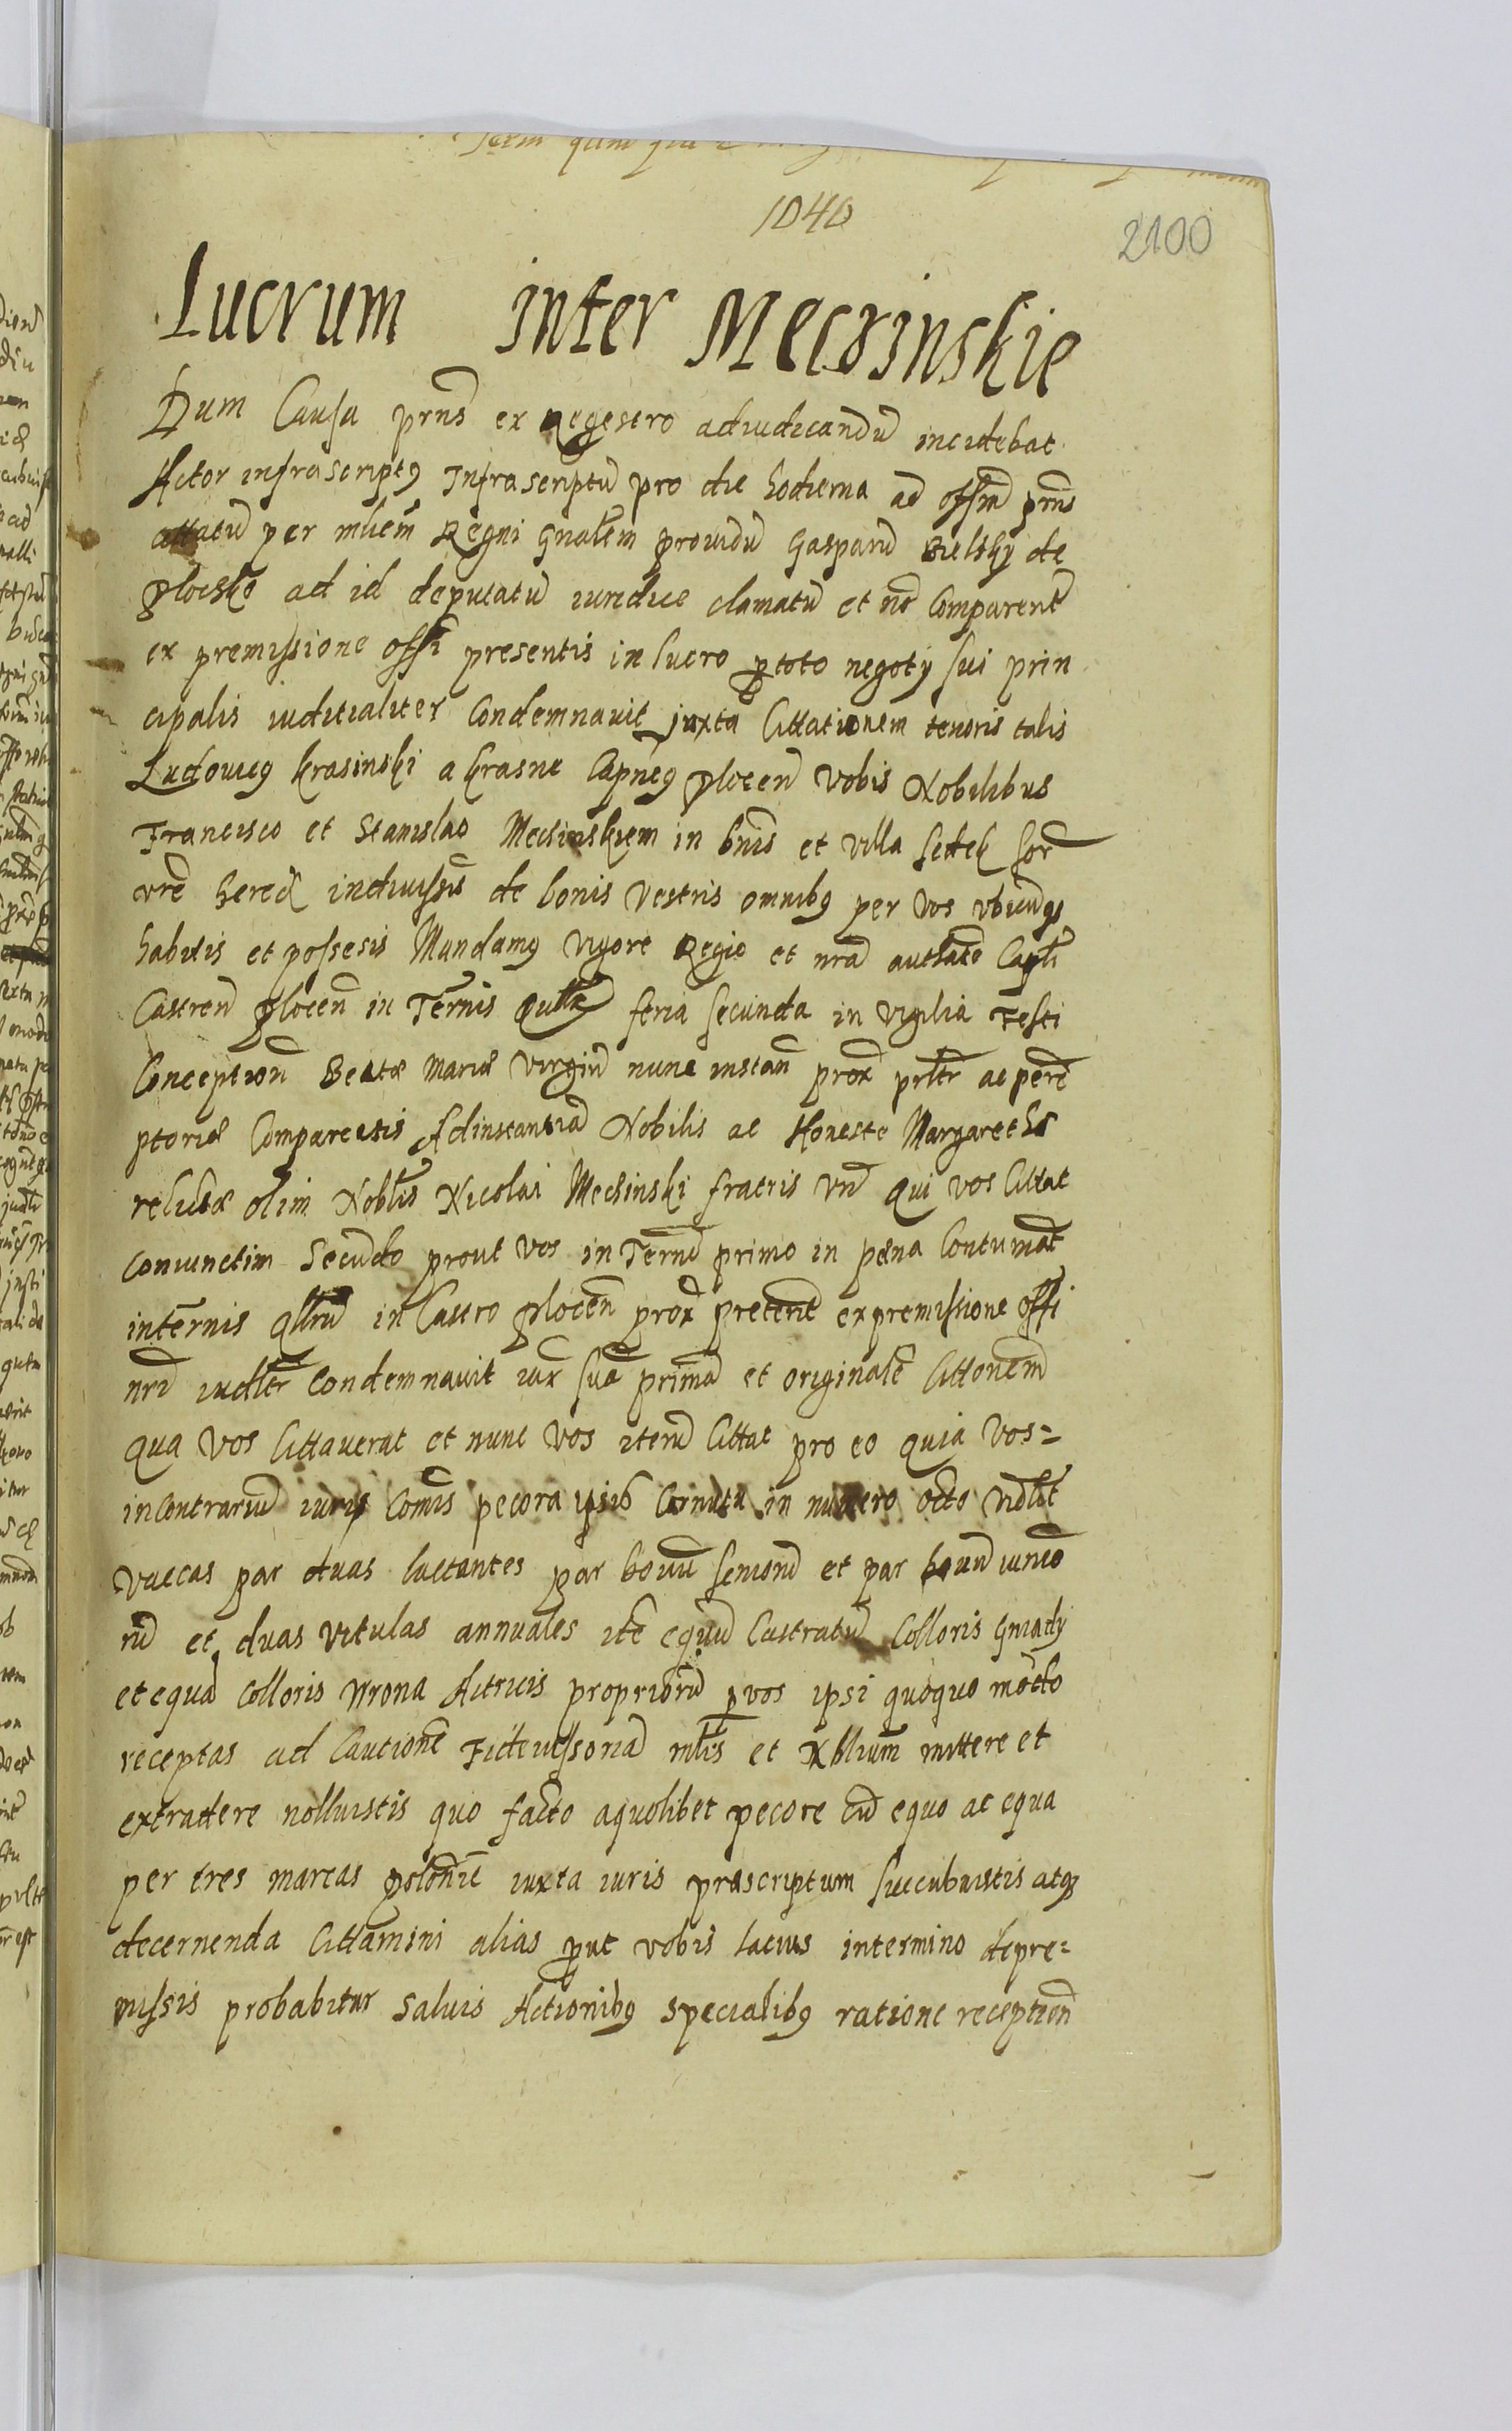 1040
2100
Lucrum inter Mecszinskie
Dum Causa prns ex Regestro adiudicandu incidebat
Actor infrascriptus Infrascriptu pro die hodierna ad offm prns
cittatu per mliem Regni gnalem prouidu Gasparu Bielsky de
Plocsko ad id deputatu iuridice clamatu et no Comparent
ex premissione offi presentis in lucro p toto negoty sui prin
cipalis iuditialiter Condemnauit juxta Cittationem tenoris talis
Ludouicus Krasinski a Krasne Capneus Plocen Vobis Nobilibus
Francisco et Stanislao Mecsinskiem in bnis et villa
vre hered indiuisis de bonis Vestris omnibus per Vos vbicunqs
habitis et possesis Mandamus vigore Regio et nra authate Capli
Castren Plocen in Ternis feria secunda in vigilia Festi
Conception Beatæ Mariæ Virgin nunc instan prox prltr ac pere
ptoriæ Compareatis Adinstantia Nobilis ac Honeste Margarethæ
relictæ olim Noblis Nicolai Mecsinski fratris vri qui vos Cittat
coniunctim Secundo prout vos in Terno primo in pæna Contumat
internis qllru in Castro Plocen prox preterit expremissione offi
nri iudltr Condemnauit iux sua prima et originale Cittonem
qua vos Cittauerat et nunc vos iteru Cittat pro eo quia vos=
incontrariu iuris Comis pecora ipsius Cornuta in numero octo vidlit
vaccas par duas lactantes par bouu senioru et par bouu iunio
ru et duas vitulas annuales ite equu Castratu Colloris gniady
et equa Colloris Wrona Actricis proprioru p vos ipsi quoquo modo
receptas ad Cautione Fideiussoria mlis et Nbilium mittere et
extradere nolluistis quo facto aquolibet pecore cu equo ac equa
per tres marcas polonie iuxta iuris præscriptum succubuistis atqs
decernenda Cittamini alias put vobis latius intermino depre=
missis probabitur saluis Actionibus specialibus ratione reception